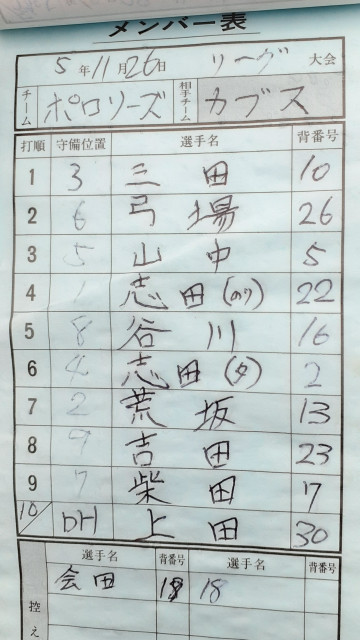 メンバー表
5年11月26日 リーグ 大会
チーム ポロリーズ 相手チーム カブス
打順 守備位置 選手名 背番号
1 3 三田 10
2 6 弓場 26
3 5 山中 5
4 1 志田(のり) 22
5 8 谷川 16
6 4 志田(タ) 2
7 2 荒坂 13
8 9 吉田 23
9 7 柴田 17
10 DH 上田 30
選手名 背番号 選手名 背番号
控え 会田 18